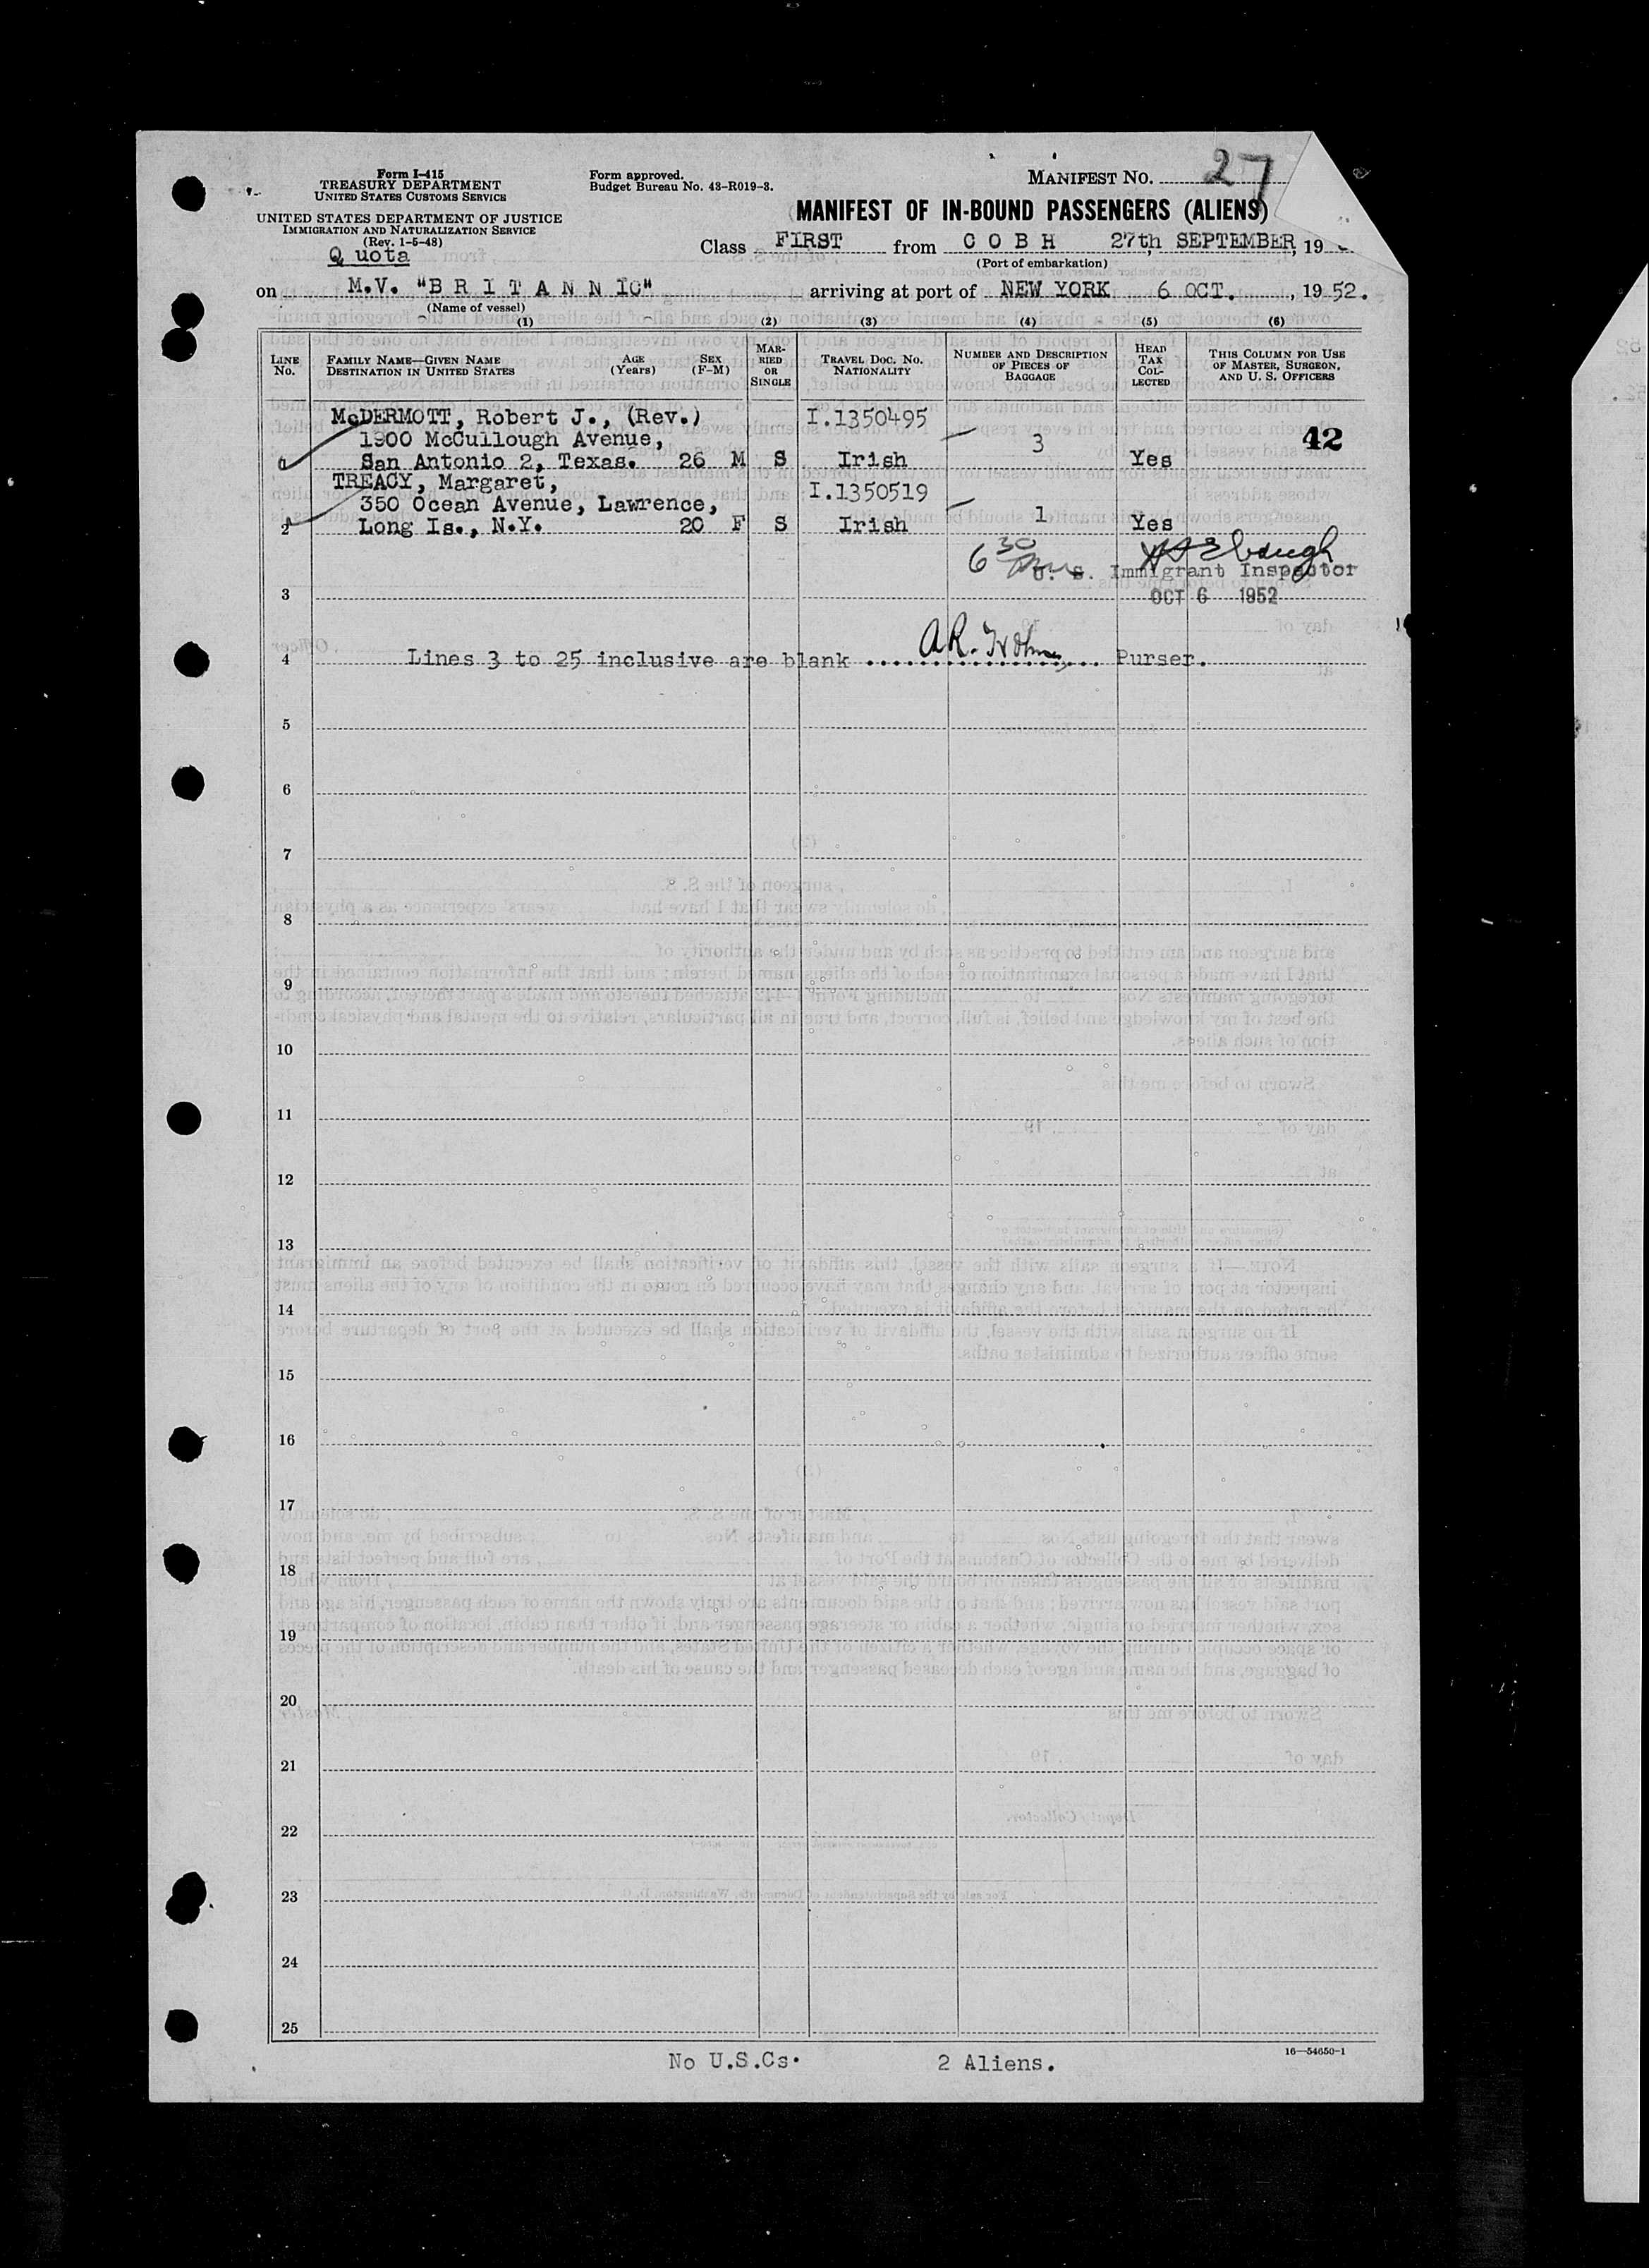 Form I-415
TREASURY DEPARTMENT
UNITED STATES CUSTOMS SERVICE
UNITED STATES DEPARTMENT OF JUSTICE
IMMIGRATION AND NATURALIZATION SERVICE
(Rev. 1-5-48)
Form approved.
Budget Bureau No. 43-R019-3.
MANIFEST NO. 27
MANIFEST OF IN-BOUND PASSENGERS (ALIENS)
Q uota
Class FIRST from C O B H 27th SEPTEMBER, 19
(Port of embarkation)
on M.V. "B R I T A N N IC" arriving at port of NEW YORK 6 OCT. , 19 52.
(Name of vessel)
(1) (2) (3) (4) (5) (6)
LINE No. FAMILY NAME—GIVEN NAME DESTINATION IN UNITED STATES AGE (Years) SEX (F-M) MARRIED OR SINGLE TRAVEL DOC. NO. NATIONALITY NUMBER AND DESCRIPTION OF PIECES OF BAGGAGE HEAD TAX COLLECTED THIS COLUMN FOR USE OF MASTER, SURGEON, AND U. S. OFFICERS
McDERMOTT, Robert J., (Rev.) I.1350495
1900 McCullough Avenue, 3 42
San Antonio 2, Texas. 26 M S Irish Yes
TREACY, Margaret, I.1350519
350 Ocean Avenue, Lawrence, 1
2 Long Is., N.Y. 20 F S Irish Yes
6 30
U. S. Immigrant Inspector
3 OCT 6 1952
4 Lines 3 to 25 inclusive are blank Purser.
5
6
7
8
9
10
11
12
13
14
15
16
17
18
19
20
21
22
23
24
25
16—54650-1
No U.S.Cs. 2 Aliens.